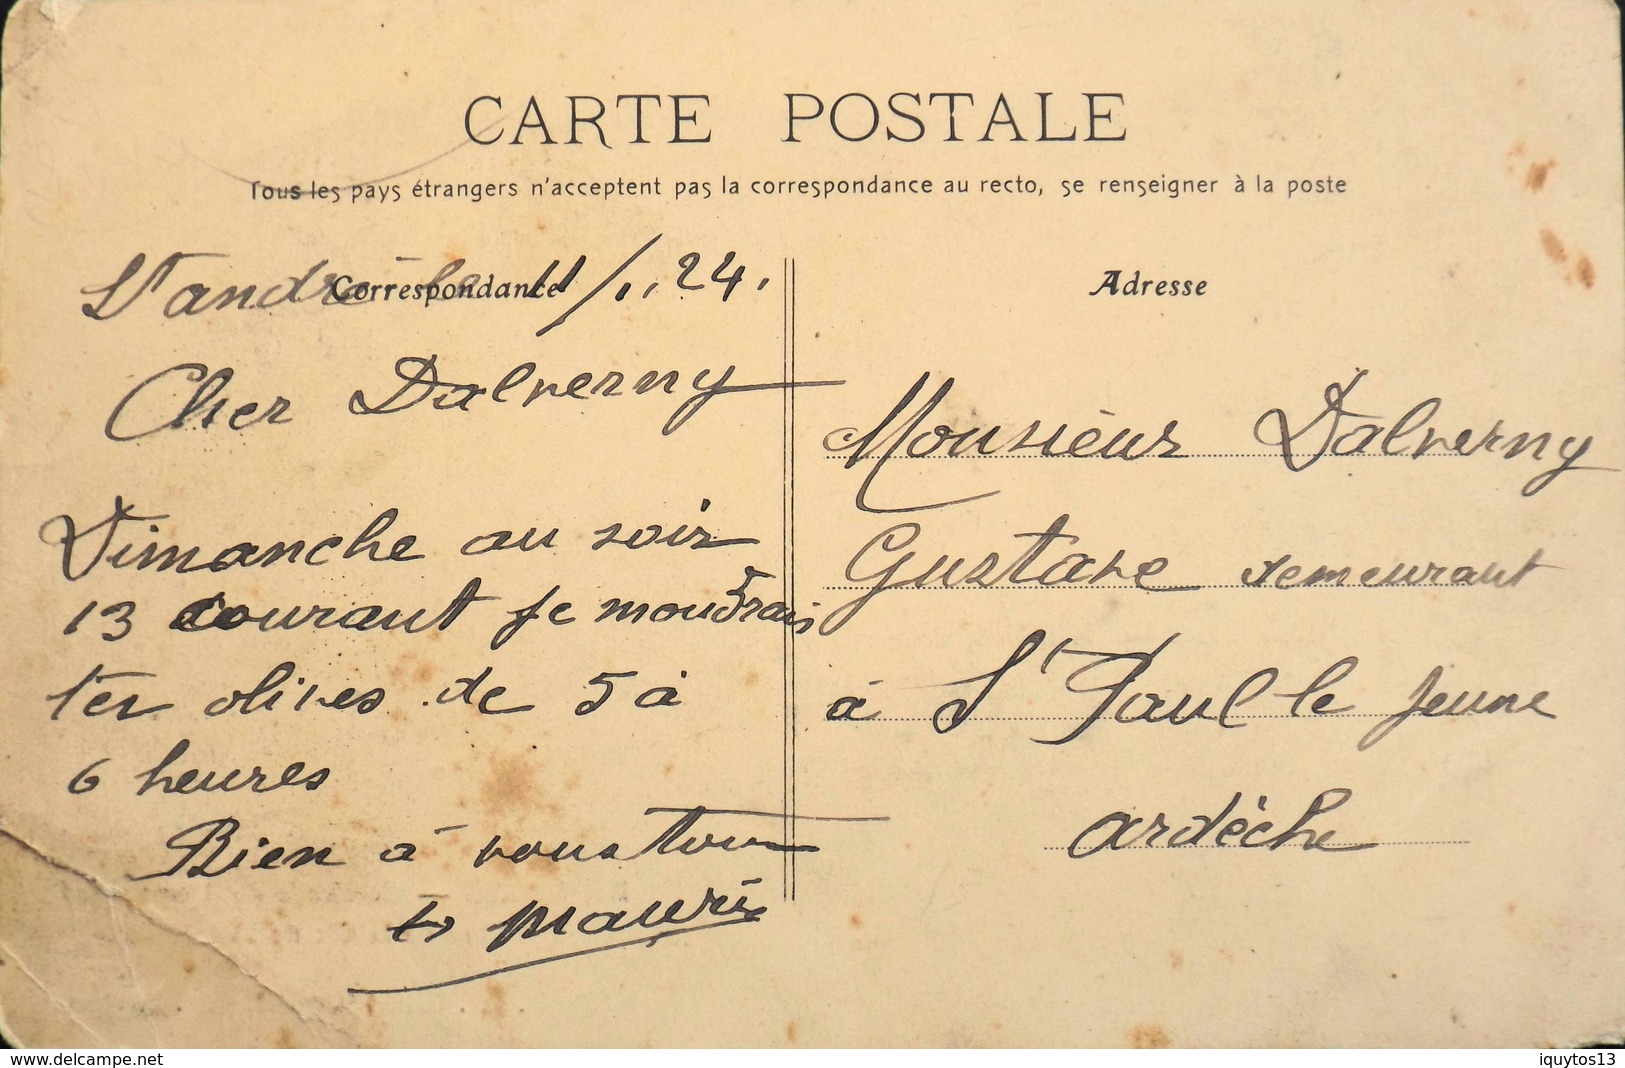 CARTE POSTALE
Tous les pays étrangers n'acceptent pas la correspondance au recto, se renseigner à la poste
Correspondance
St andré le 11/1. 24.
Cher Dalverny
Dimanche au soir
13 courant je moudrais
tes olives de 5 à
6 heures
Bien à vous tous
ts Mauri
Adresse
Monsieur Dalverny
Gustave demeurant
à St Paul le jeune
ardèche
www.delcampe.net
iquytos13